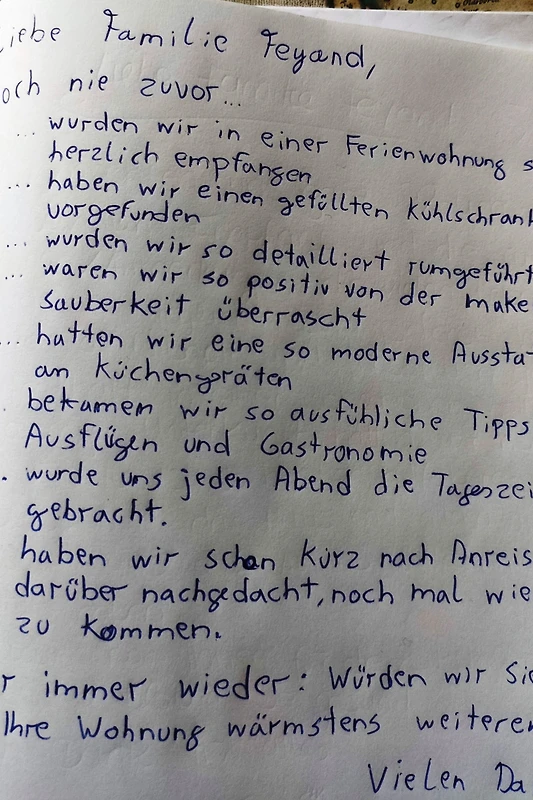 iebe Familie Feyand,
och nie zuvor...
... wurden wir in einer Ferienwohnung s
herzlich empfangen
... haben wir einen gefüllten Kühlschrank
vorgefunden
... wurden wir so detailliert rumgeführt
... waren wir so positiv von der make
Sauberkeit überrascht
... hatten wir eine so moderne Aussta
an Küchengeräten
. bekamen wir so ausfühliche Tipps
Ausflügen und Gastronomie
. wurde uns jeden Abend die Tageszei
gebracht.
haben wir schon kurz nach Anreis
darüber nachgedacht, noch mal wie
zu kommen.
r immer wieder: Würden wir Sie
Ihre Wohnung wärmstens weiterem
Vielen Da